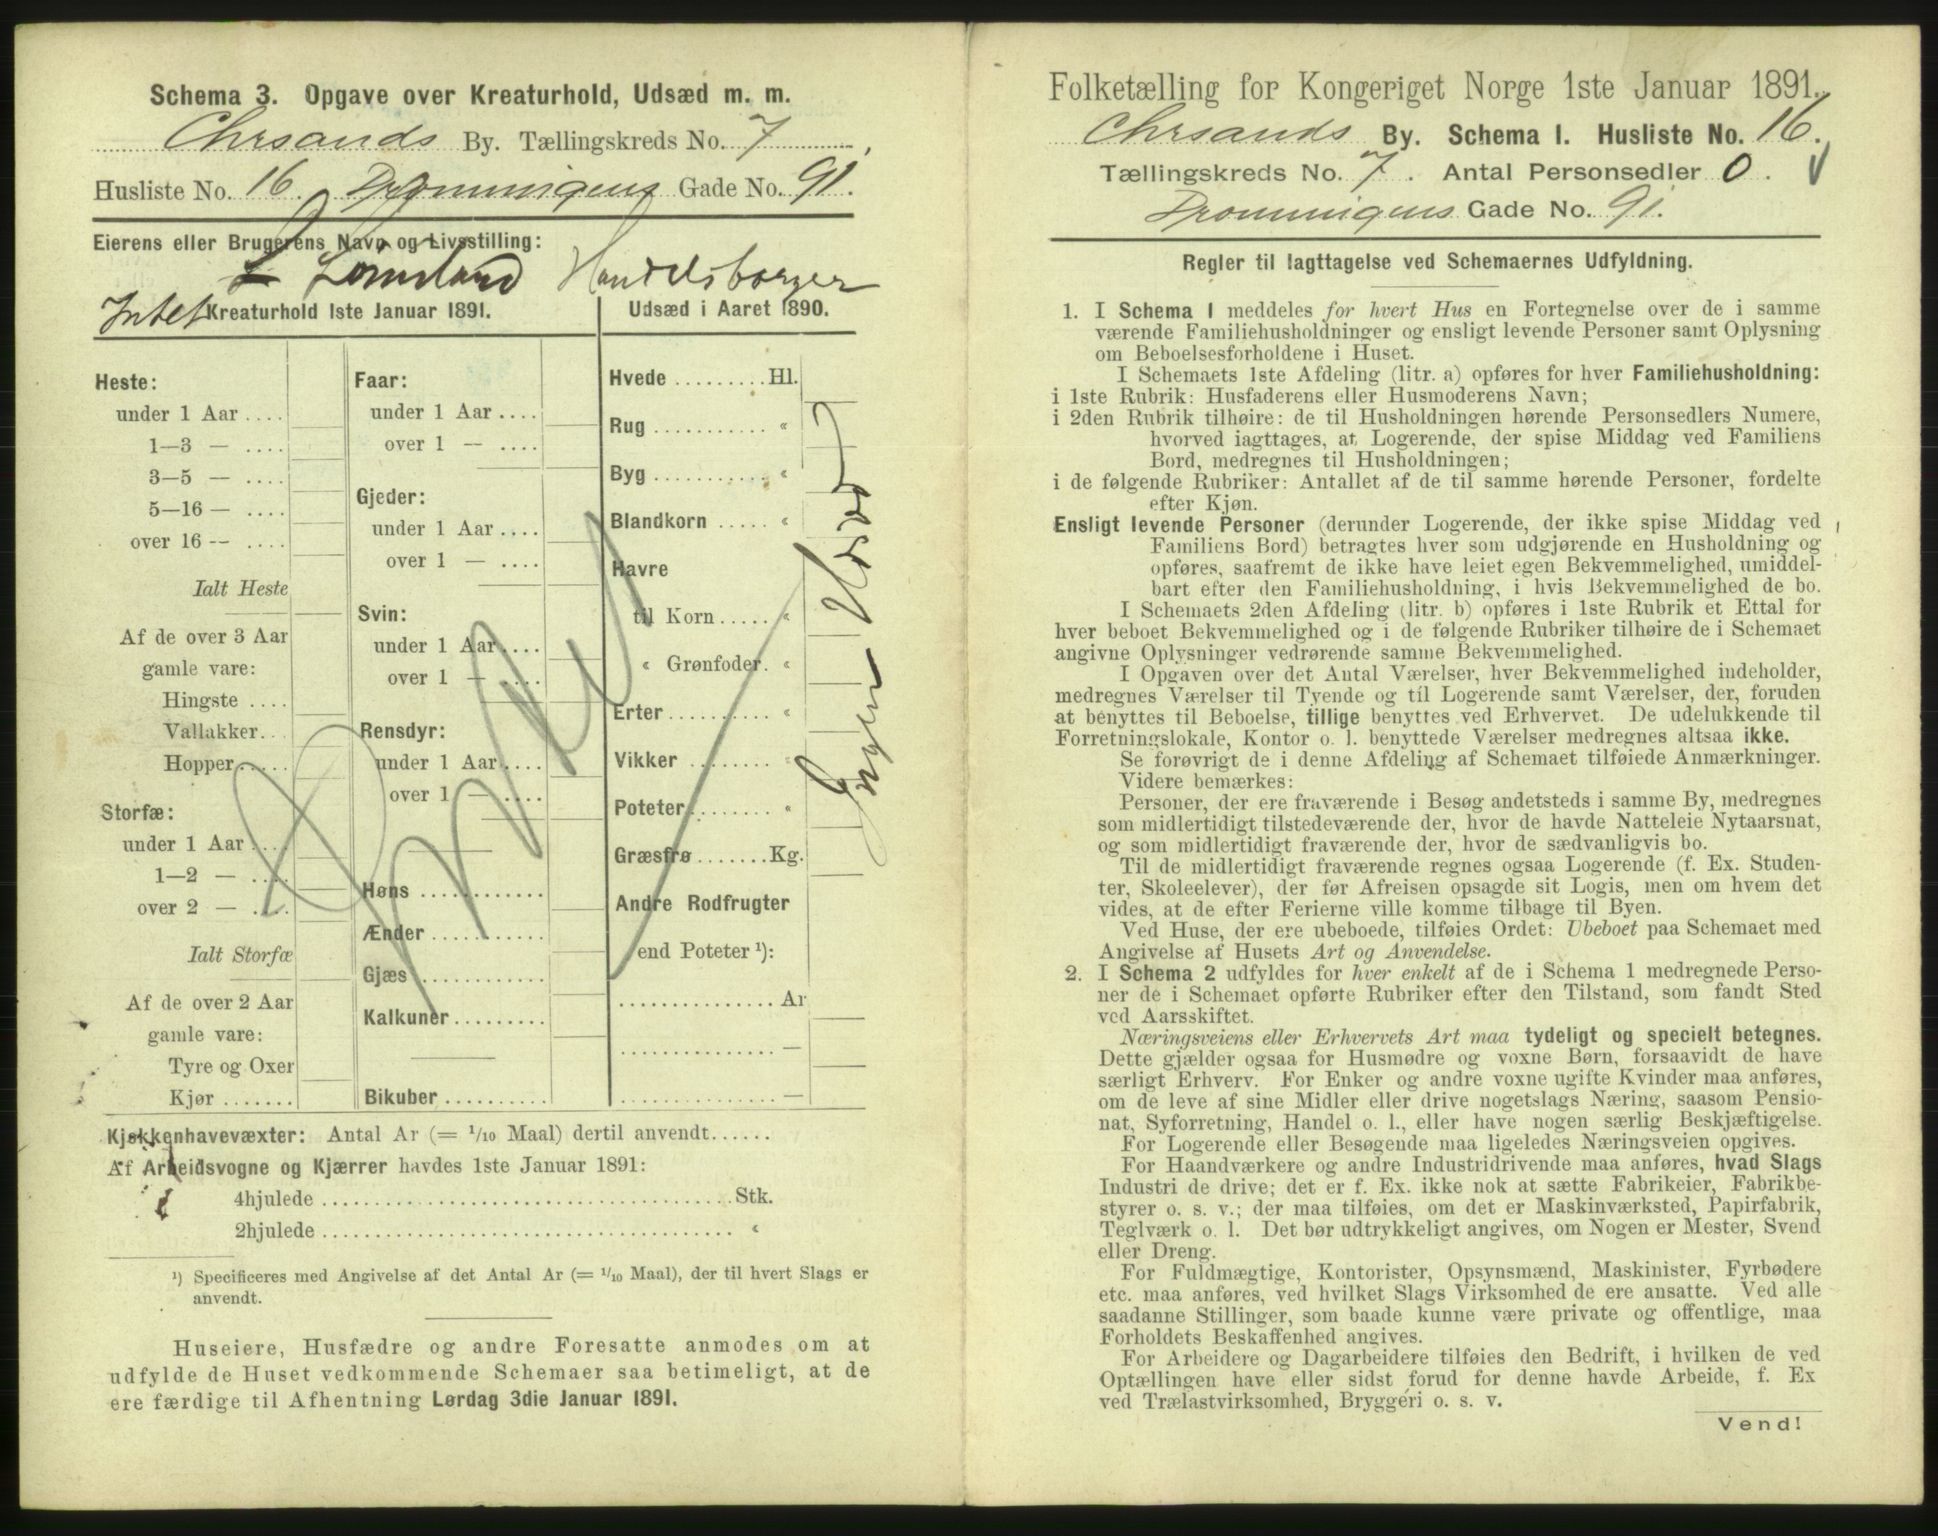 Schema 3. Opgave over Kreaturhold, Udsæd m. m.
Chrsands By. Tællingskreds No. 7
Husliste No. 16. Dronningens Gade No. 91.
Eierens eller Brugerens Navn og Livsstilling:
Handelsborger
Intet
Kreaturhold 1ste Januar 1891.
Heste:
under 1 Aar ....
1—3 — ....
3—5 — ....
5—16 — ....
over 16 -- ....
Ialt Heste
Af de over 3 Aar
gamle vare:
Hingste ....
Vallakker...
Hopper.....
Storfæ:
under 1 Aar ....
1—2 — ....
over 2 — ....
Ialt Storfæ
Af de over 2 Aar
gamle vare:
Tyre og Oxer
Kjør .......
Faar:
under 1 Aar ....
over 1 — ....
Gjeder:
under 1 Aar ....
over 1 — ....
Svin:
under 1 Aar ....
over 1 — ....
Rensdyr:
under 1 Aar ....
over 1 — ....
Høns ...........
Ænder ..........
Gjæs ...........
Kalkuner .........
Bikuber ..........
Udsæd i Aaret 1890.
Hvede ......... Hl.
Rug ........... «
Byg ........... «
Blandkorn ..... «
Havre
til Korn ..... «
« Grønfoder. «
Erter .......... «
Vikker ........ «
Poteter ........ «
Græsfrø ....... Kg.
Andre Rodfrugter
end Poteter ¹):
............... Ar
............... —
............... —
Ingen
Kjøkkenhavevæxter: Antal Ar (= 1/10 Maal) dertil anvendt......
Af Arbeidsvogne og Kjærrer havdes 1ste Januar 1891:
4hjulede ........................................ Stk.
2hjulede ........................................ «
¹) Specificeres med Angivelse af det Antal Ar (= 1/10 Maal), der til hvert Slags er
anvendt.
Huseiere, Husfædre og andre Foresatte anmodes om at
udfylde de Huset vedkommende Schemaer saa betimeligt, at de
ere færdige til Afhentning Lørdag 3die Januar 1891.
Folketælling for Kongeriget Norge 1ste Januar 1891.
Chrsands By. Schema I. Husliste No. 16.
Tællingskreds No. 7. Antal Personsedler 0.
Dronningens Gade No. 91.
Regler til Iagttagelse ved Schemaernes Udfyldning.
1. I Schema I meddeles for hvert Hus en Fortegnelse over de i samme
værende Familiehusholdninger og ensligt levende Personer samt Oplysning
om Beboelsesforholdene i Huset.
I Schemaets 1ste Afdeling (litr. a) opføres for hver Familiehusholdning:
i 1ste Rubrik: Husfaderens eller Husmoderens Navn;
i 2den Rubrik tilhøire: de til Husholdningen hørende Personsedlers Numere,
hvorved iagttages, at Logerende, der spise Middag ved Familiens
Bord, medregnes til Husholdningen;
i de følgende Rubriker: Antallet af de til samme hørende Personer, fordelte
efter Kjøn.
Ensligt levende Personer (derunder Logerende, der ikke spise Middag ved
Familiens Bord) betragtes hver som udgjørende en Husholdning og
opføres, saafremt de ikke have leiet egen Bekvemmelighed, umiddel-
bart efter den Familiehusholdning, i hvis Bekvemmelighed de bo.
I Schemaets 2den Afdeling (litr. b) opføres i 1ste Rubrik et Ettal for
hver beboet Bekvemmelighed og i de følgende Rubriker tilhøire de i Schemaet
angivne Oplysninger vedrørende samme Bekvemmelighed.
I Opgaven over det Antal Værelser, hver Bekvemmelighed indeholder,
medregnes Værelser til Tyende og til Logerende samt Værelser, der, foruden
at benyttes til Beboelse, tillige benyttes ved Erhvervet. De udelukkende til
Forretningslokale, Kontor o. l. benyttede Værelser medregnes altsaa ikke.
Se forøvrigt de i denne Afdeling af Schemaet tilføiede Anmærkninger.
Videre bemærkes:
Personer, der ere fraværende i Besøg andetsteds i samme By, medregnes
som midlertidigt tilstedeværende der, hvor de havde Natteleie Nytaarsnat,
og som midlertidigt fraværende der, hvor de sædvanligvis bo.
Til de midlertidigt fraværende regnes ogsaa Logerende (f. Ex. Studen-
ter, Skoleelever), der før Afreisen opsagde sit Logis, men om hvem det
vides, at de efter Ferierne ville komme tilbage til Byen.
Ved Huse, der ere ubeboede, tilføies Ordet: Ubeboet paa Schemaet med
Angivelse af Husets Art og Anvendelse.
2. I Schema 2 udfyldes for hver enkelt af de i Schema 1 medregnede Perso-
ner de i Schemaet opførte Rubriker efter den Tilstand, som fandt Sted
ved Aarsskiftet.
Næringsveiens eller Erhvervets Art maa tydeligt og specielt betegnes.
Dette gjælder ogsaa for Husmødre og voxne Børn, forsaavidt de have
særligt Erhverv. For Enker og andre voxne ugifte Kvinder maa anføres,
om de leve af sine Midler eller drive nogetslags Næring, saasom Pensio-
nat, Syforretning, Handel o. l., eller have nogen særlig Beskjæftigelse.
For Logerende eller Besøgende maa ligeledes Næringsveien opgives.
For Haandværkere og andre Industridrivende maa anføres, hvad Slags
Industri de drive; det er f. Ex. ikke nok at sætte Fabrikeier, Fabrikbe-
styrer o. s. v.; der maa tilføies, om det er Maskinværksted, Papirfabrik,
Teglværk o. l. Det bør udtrykkeligt angives, om Nogen er Mester, Svend
eller Dreng.
For Fuldmægtige, Kontorister, Opsynsmænd, Maskinister, Fyrbødere
etc. maa anføres, ved hvilket Slags Virksomhed de ere ansatte. Ved alle
saadanne Stillinger, som baade kunne være private og offentlige, maa
Forholdets Beskaffenhed angives.
For Arbeidere og Dagarbeidere tilføies den Bedrift, i hvilken de ved
Optællingen have eller sidst forud for denne havde Arbeide, f. Ex
ved Trælastvirksomhed, Bryggeri o. s. v.
Vend!